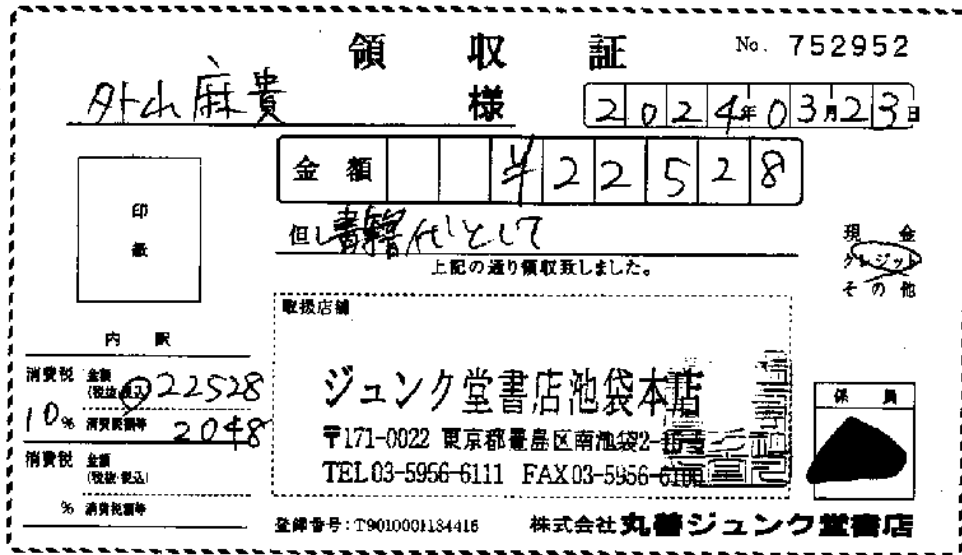 領収証 No. 752952
外山麻貴 様 2024年03月23日
金額 ¥22528
但し書籍代として
上記の通り領収致しました。
現金
クレジット
その他
印紙
取扱店舗
内訳
消費税 金額(税抜・税込) 22528
10% 消費税額等 2048
消費税 金額(税抜・税込)
% 消費税額等
ジュンク堂書店池袋本店
〒171-0022 東京都豊島区南池袋2-
TEL 03-5956-6111 FAX 03-5956-6100
係員
登録番号:T9010001134416 株式会社丸善ジュンク堂書店